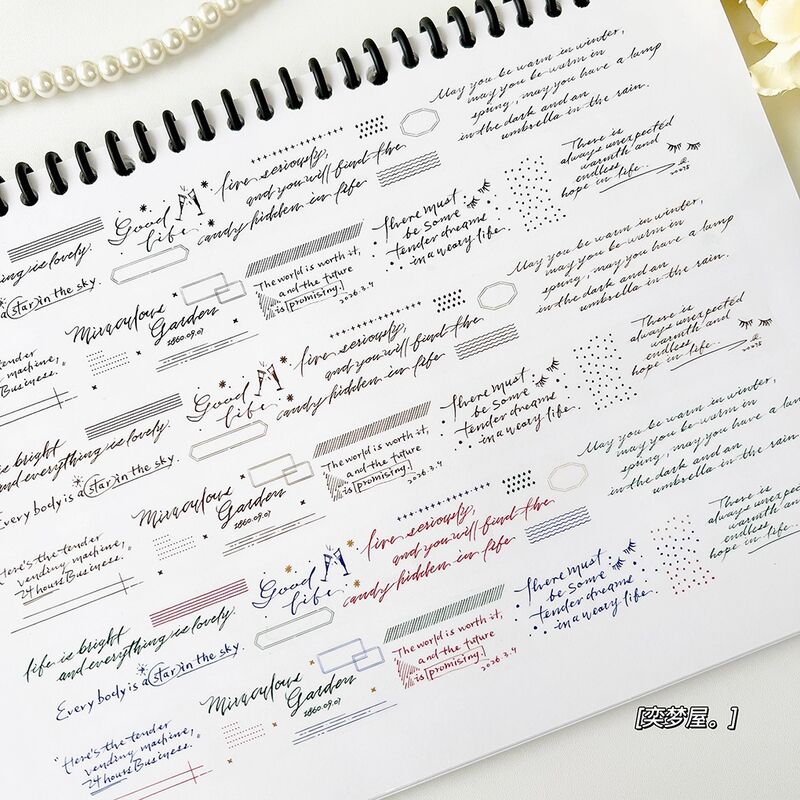 May you be warm in winter,
may you be warm in
spring, may you have a lamp
in the dark and an
umbrella in the rain.
There is
always unexpected
warmth and
endless
hope in life..
Good
life.
live seriously,
and you will find the
candy hidden in life
There must
be some
tender dreams
in a weary life.
ing is lovely.
a star in the sky.
Miraculous
Garden
1860.09.07
The world is worth it,
and the future
is promising.
2026.3.4
the tender
machine,
Business."
May you be warm in winter,
may you be warm in
spring, may you have a lamp
in the dark and an
umbrella in the rain.
There is
always unexpected
warmth and
endless
hope in life..
Good
life.
live seriously,
and you will find the
candy hidden in life
There must
be some
tender dreams
in a weary life.
is bright
and everything is lovely.
Every body is a star in the sky.
Miraculous
Garden
1860.09.07
The world is worth it,
and the future
is promising.
2026.3.4
"Here's the tender
vending machine,
24 hours Business."
May you be warm in winter,
may you be warm in
spring, may you have a lamp
in the dark and an
umbrella in the rain.
There is
always unexpected
warmth and
endless
hope in life..
Good
life.
live seriously,
and you will find the
candy hidden in life
There must
be some
tender dreams
in a weary life.
life is bright
and everything is lovely.
Every body is a star in the sky.
Miraculous
Garden
1860.09.07
The world is worth it,
and the future
is promising.
2026.3.4
"Here's the tender
vending machine,
24 hours Business."
[奕梦屋。]